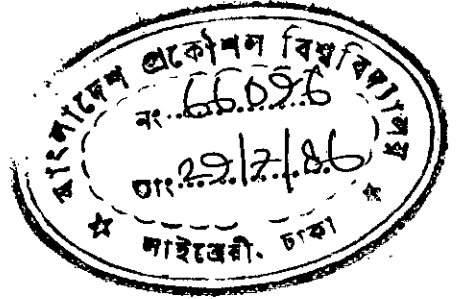 বাংলাদেশ প্রকৌশল বিশ্ববিদ্যালয়
নং..66096
তাং..29/7/86
লাইব্রেরী. ঢাকা